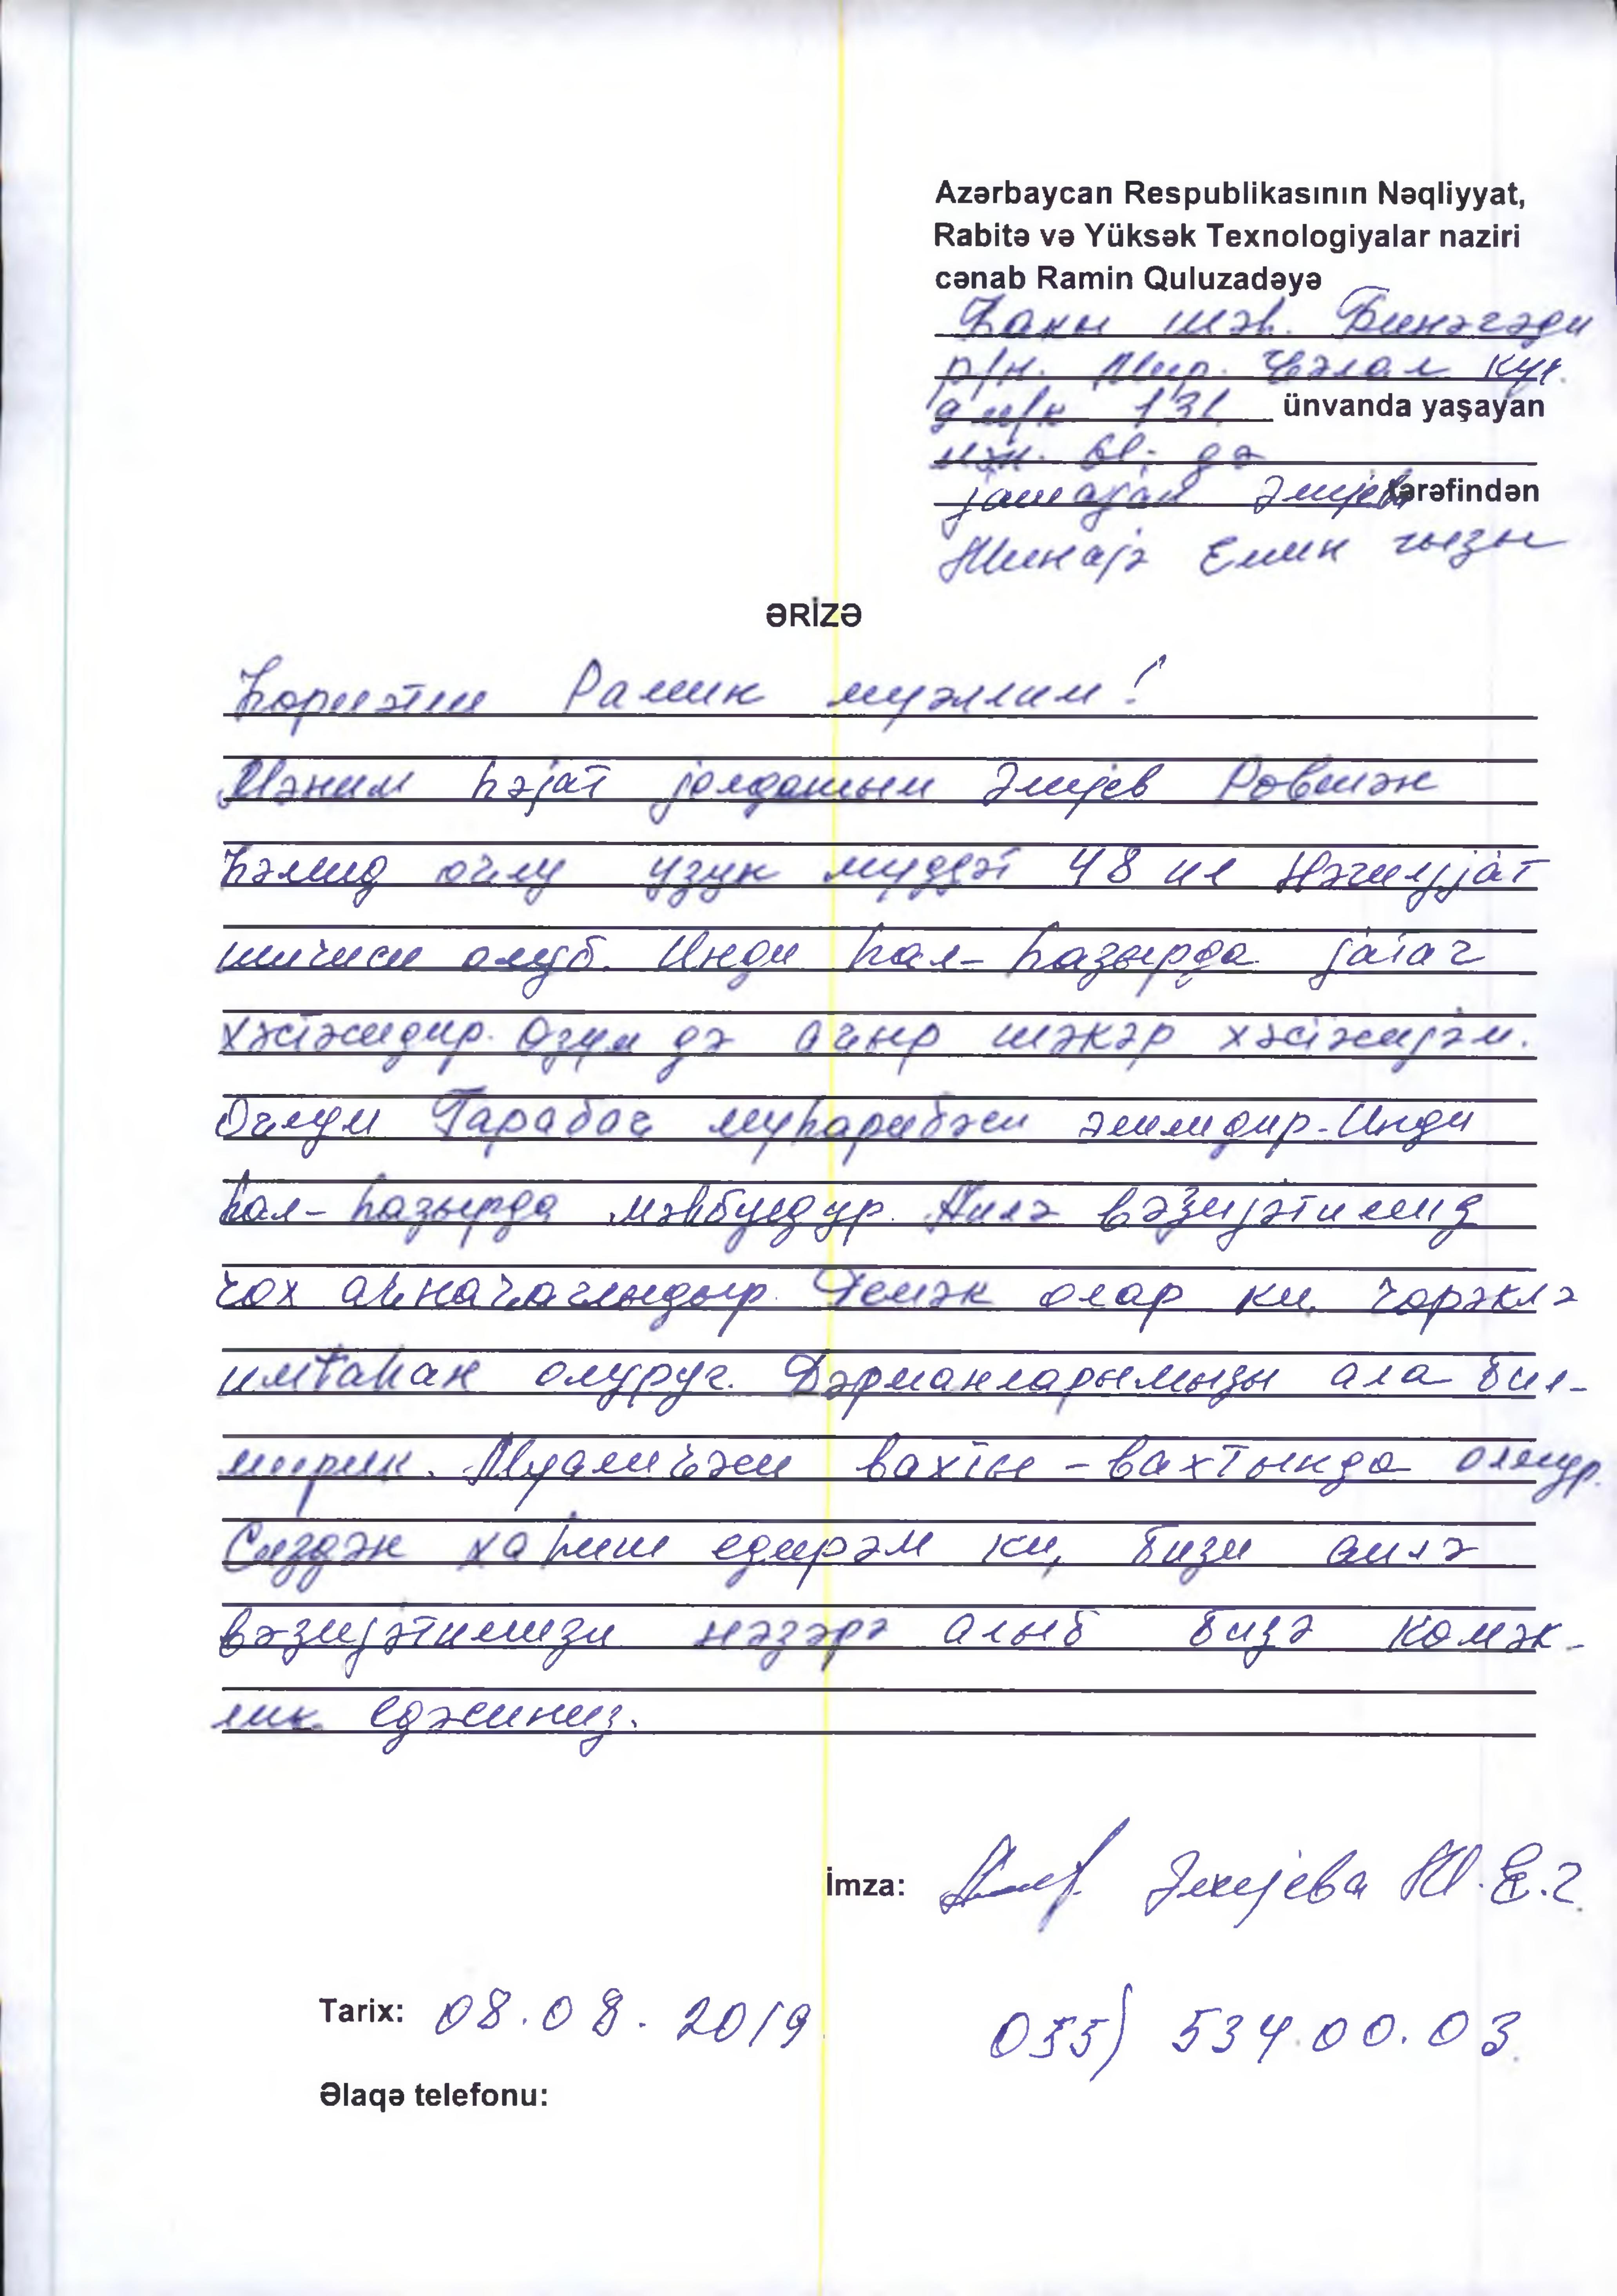 Azərbaycan Respublikasının Nəqliyyat,
Rabitə və Yüksək Texnologiyalar naziri
cənab Ramin Quluzadəyə
Бакы шәһ. Бинәгәди
р/н. Мир. Ҹәлал күч.
131 ünvanda yaşayan
мән. 61; дә
јашајан Әлијева tərəfindən
Минајә Емин гызы
ƏRİZƏ
Һөрмәтли Рамин мүәллим!
Мәним һәјат јолдашым Әлијев Ровшән
Һәмид оғлу узун муддәт 48 ил Нәгилјјат
ишчиси олуб. Инди һал-һазырда јатаг
хәстәсидир. Өзүм дә ағыр шәкәр хәстәсијәм.
Оғлум Гарабағ муһарибәси әлилидир. Инди
һал-һазырда мәһбусдур. Аилә вәзијәтимиз
чох аҹынаҹаглыдыр. Демәк олар ки, чөрәклә
имтаһан олуруг. Дәрманларымызы ала бил-
мирик. Муалиҹәси вахты-вахтында олмур.
Сиздән хаһиш едирәм ки, бизи аилә
вәзијәтимизи нәзәрә алыб бизә көмәк-
лик едәсиниз.
İmza: Әлијева М.Е.г.
Tarix: 08.08.2019
055) 534.00.03
Əlaqə telefonu: